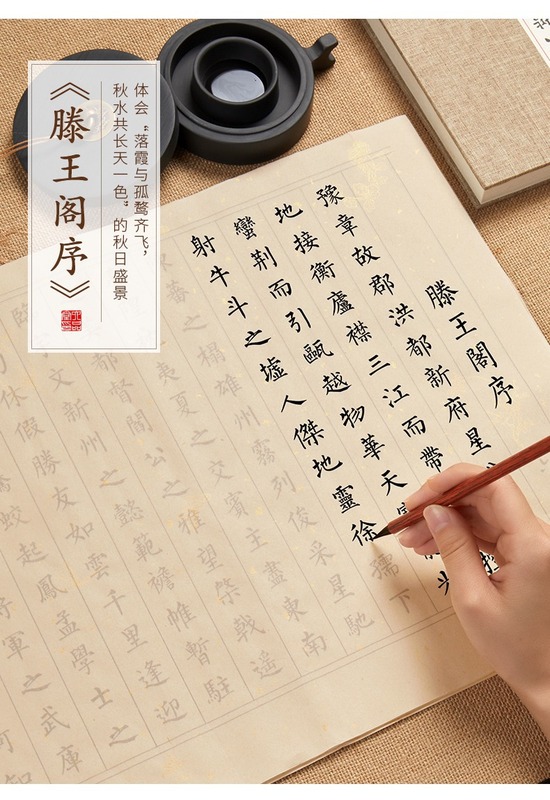 《滕王阁序》
体会“落霞与孤鹜齐飞,
秋水共长天一色”的秋日盛景
滕王閣序
豫章故郡洪都新府星
地接衡廬襟三江而帶
蠻荆而引甌越物華天
射牛斗之墟人傑地靈徐孺下
蕃之榻雄州霧列俊采星馳
夷夏之交賓主盡東南
都督閻公之雅望棨戟遥
文新州之懿範襜帷暫駐
休假勝友如雲千里逢迎
蛟起鳳孟學士之
將軍之武庫